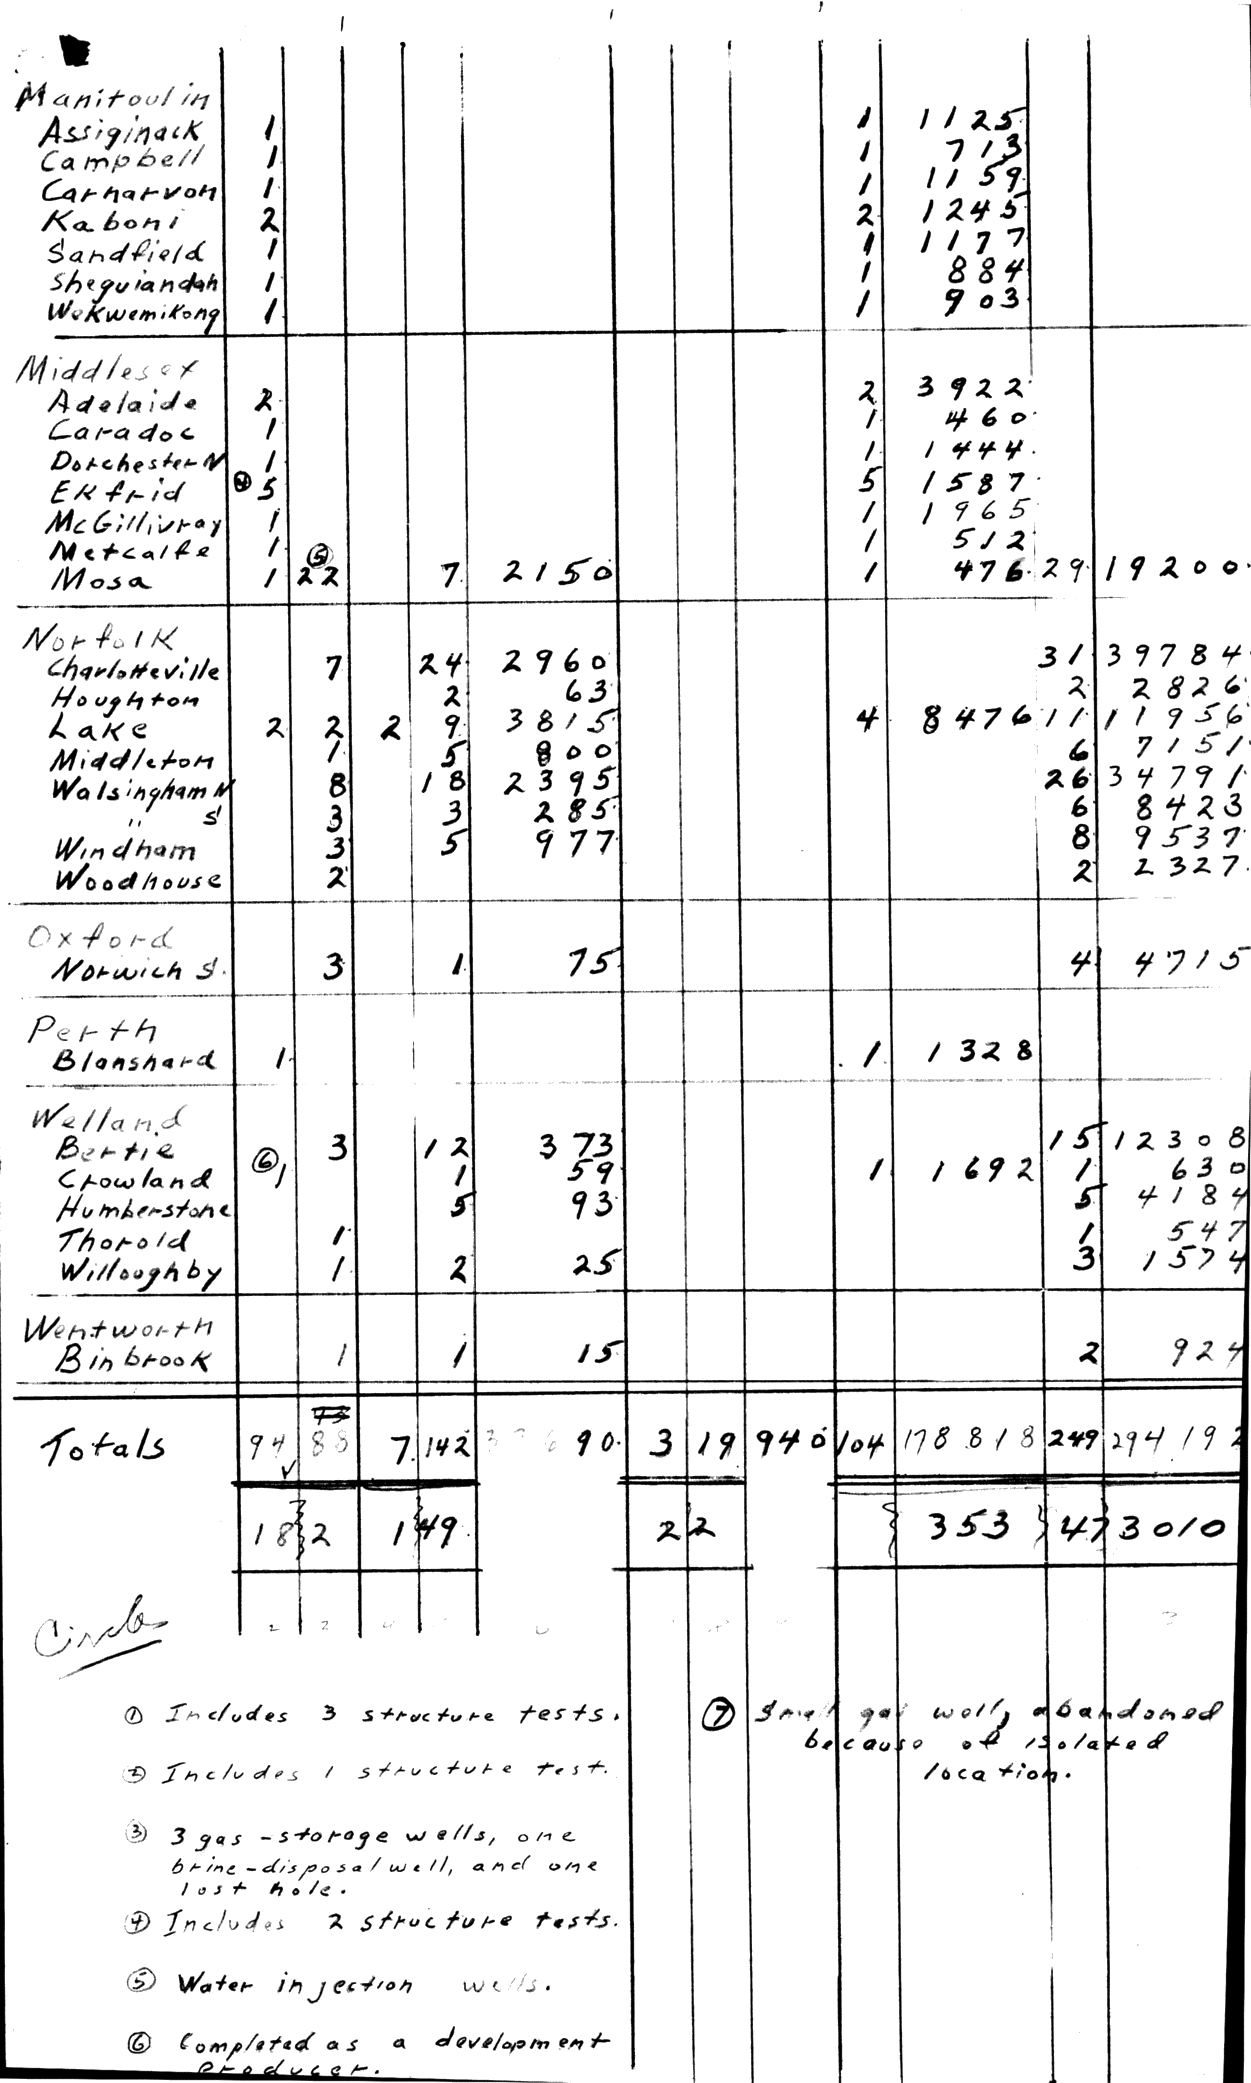 Manitoulin
Assiginack 1 1 1125
Campbell 1 1 713
Carnarvon 1 1 1159
Kaboni 2 2 1245
Sandfield 1 1 1177
Sheguiandah 1 1 884
Wekwemikong 1 1 903
Middlesex
Adelaide 2 2 3922
Caradoc 1 1 460
Dorchester N 1 1 1444
Ekfrid ④ 5 5 1587
McGillivray 1 1 1965
Metcalfe 1 1 512
⑤
Mosa 1 22 7 2150 1 476 29 19200
Norfolk
Charlotteville 7 24 2960 31 39784
Houghton 2 63 2 2826
Lake 2 2 2 9 3815 4 8476 11 11956
Middleton 1 5 800 6 7151
Walsingham N 8 18 2395 26 34791
" S 3 3 285 6 8423
Windham 3 5 977 8 9537
Woodhouse 2 2 2327
Oxford
Norwich S. 3 1 75 4 4715
Perth
Blanshard 1 1 1328
Welland
Bertie 3 12 373 15 12308
Crowland ⑥ 1 1 59 1 1692 1 630
Humberstone 5 93 5 4184
Thorold 1 1 547
Willoughby 1 2 25 3 1574
Wentworth
Binbrook 1 1 15 2 924
Totals 94 88 7 142 90 3 19 940 104 178818 249 294192
182 149 22 353 473010
Circle
① Includes 3 structure tests.
② Includes 1 structure test.
③ 3 gas-storage wells, one
brine-disposal well, and one
lost hole.
④ Includes 2 structure tests.
⑤ Water injection wells.
⑥ Completed as a development
producer.
⑦ Small gas well, abandoned
because of isolated
location.